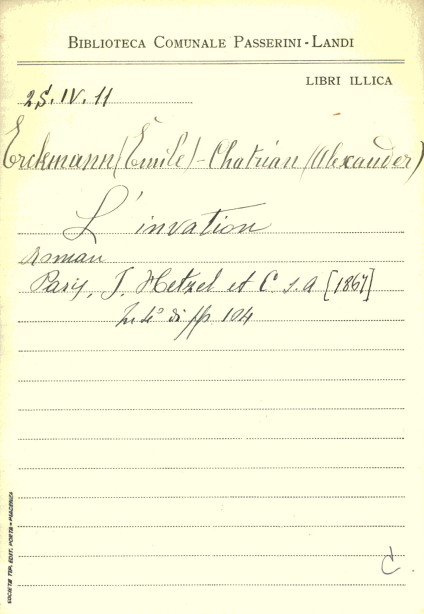 BIBLIOTECA COMUNALE PASSERINI-LANDI
LIBRI ILLICA
2S.IV.11
Erckmann (Émile) - Chatrian (Alexander)
L'invation
roman
Paris, J. Hetzel et C. s.a [1867]
In 4° di pp. 104
C.
SOCIETÀ TIP. EDIT. PORTA - PIACENZA